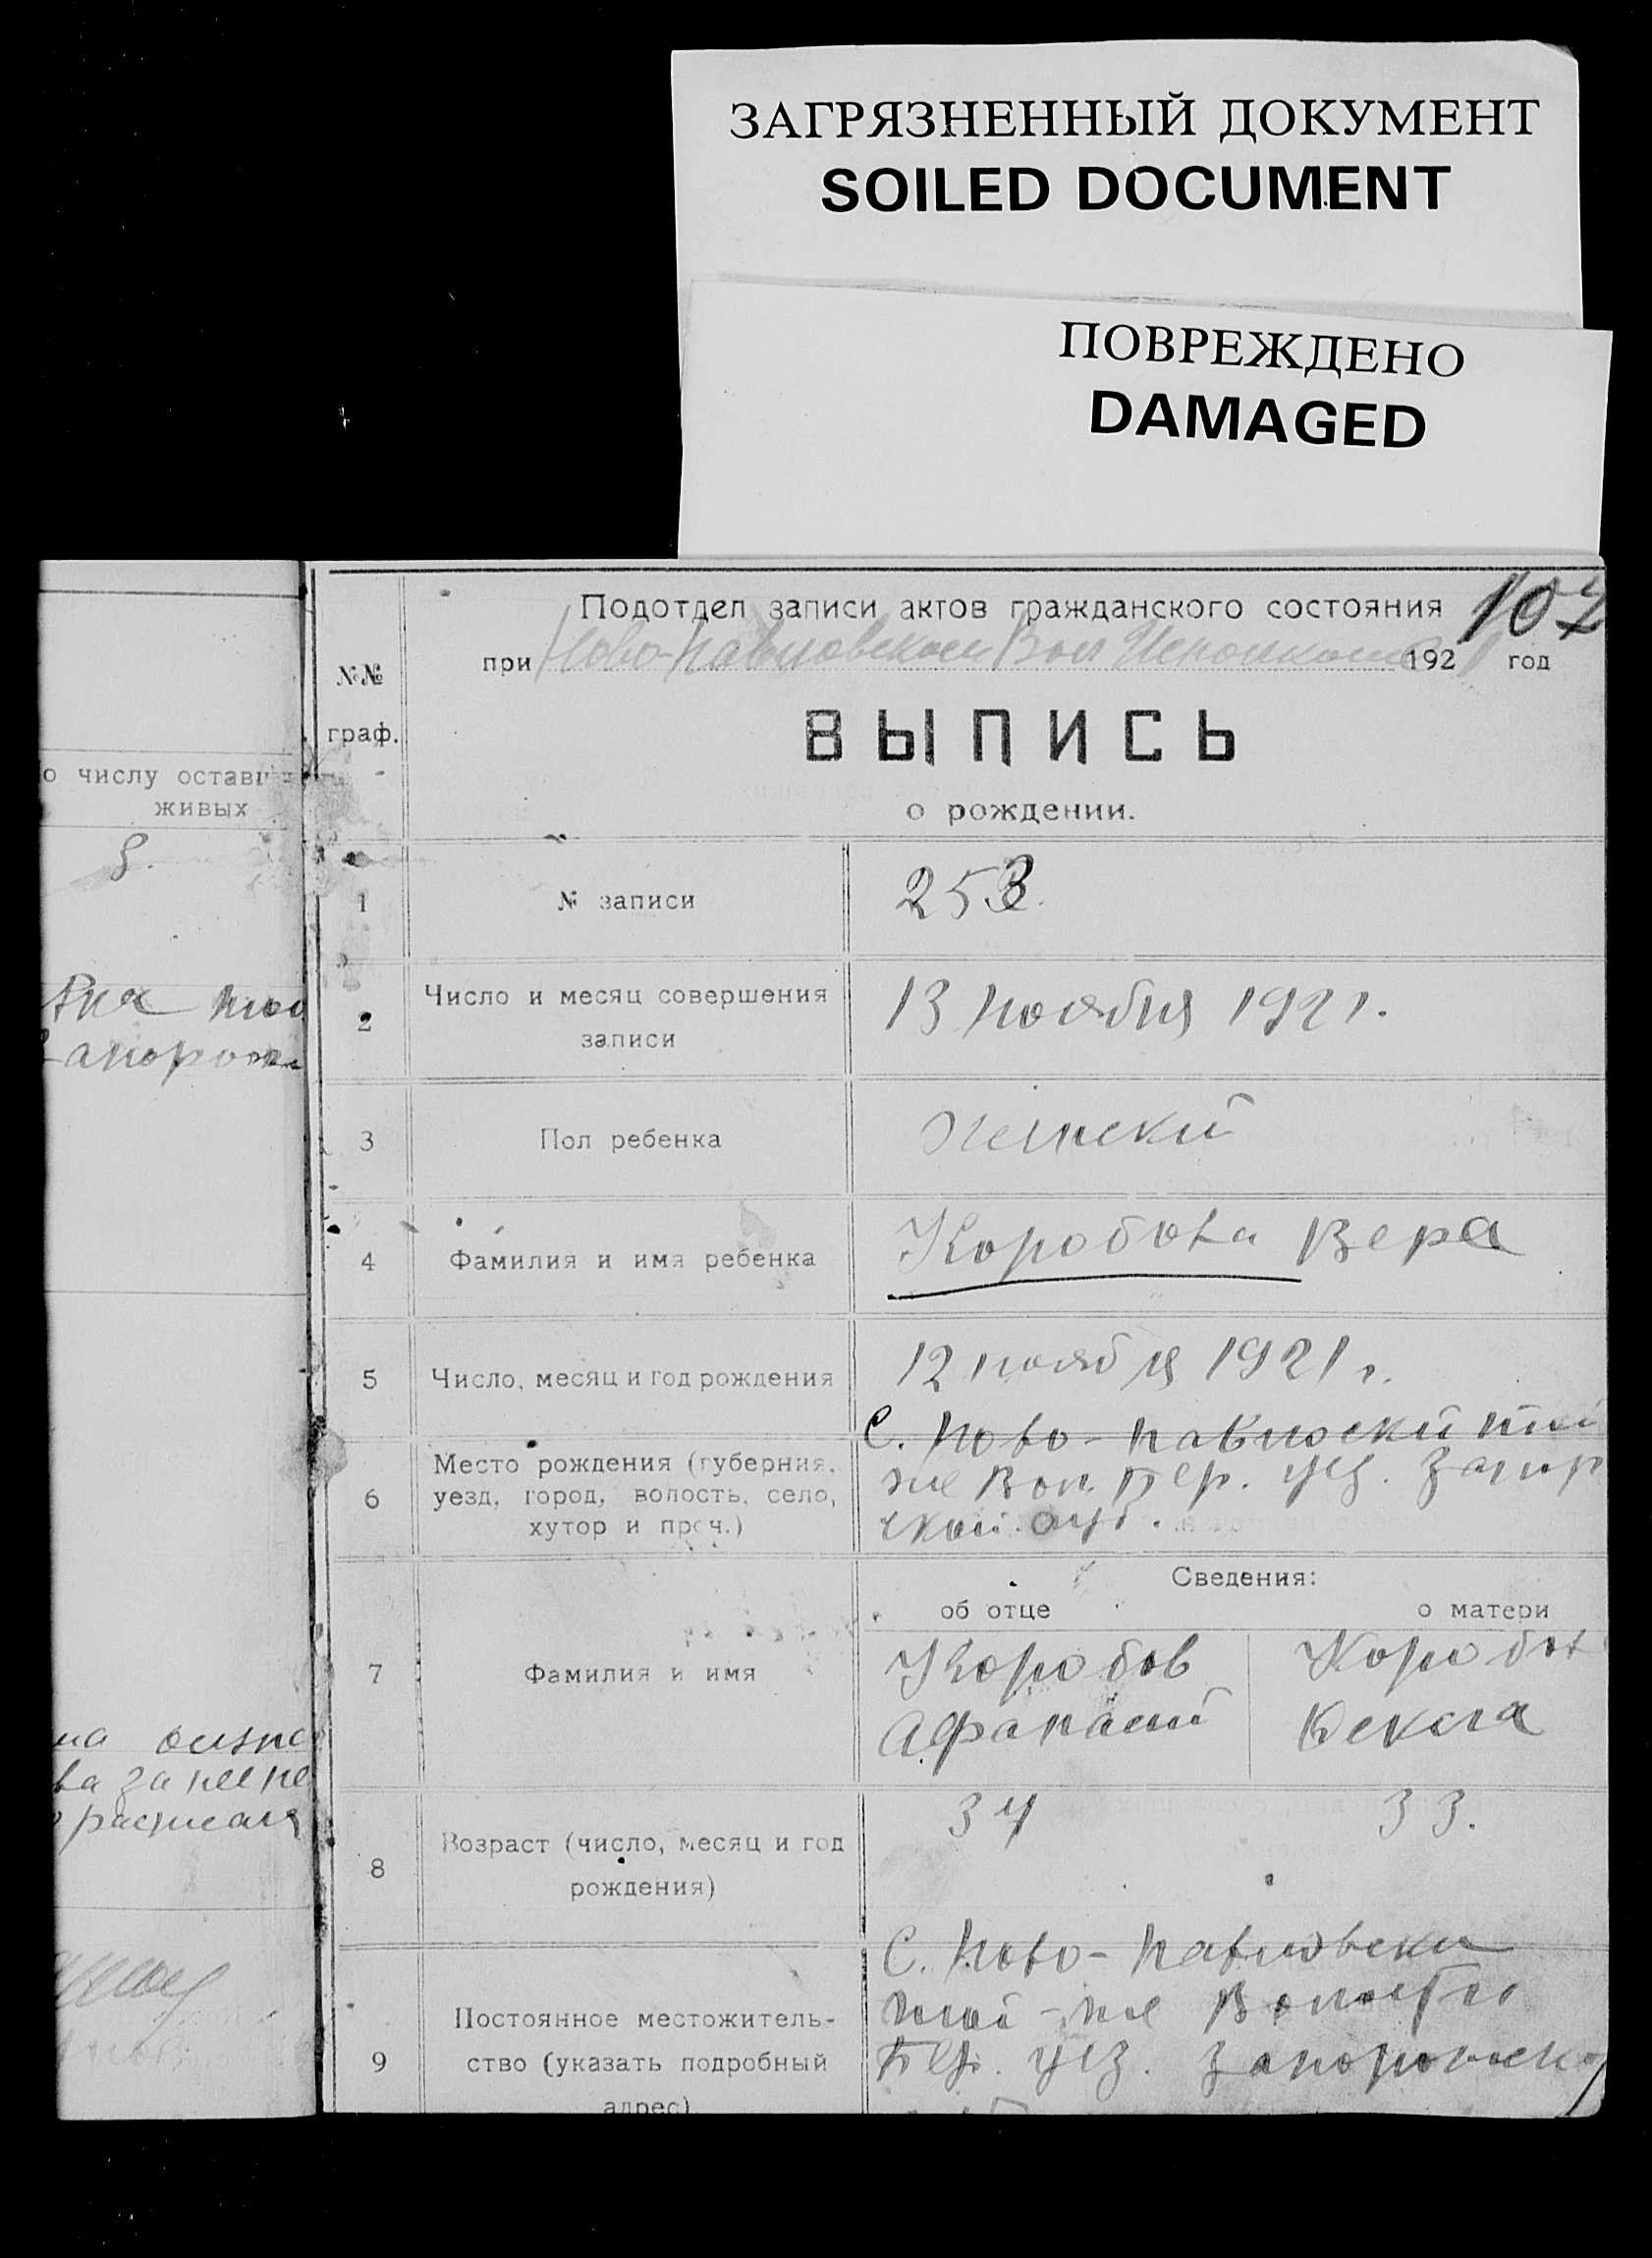 ЗАГРЯЗНЕННЫЙ ДОКУМЕНТ
SOILED DOCUMENT
ПОВРЕЖДЕНО
DAMAGED
о числу остав
живых
8.
на
ва за не
Подотдел записи актов гражданского состояния
107
при Ново-Павловском Вол Исполкоме 1921 год
№№
граф.
ВЫПИСЬ
о рождении.
1 № записи 253.
2 Число и месяц совершения
записи
13 ноября 1921.
3 Пол ребенка Женский
4 Фамилия и имя ребенка Коробова Вера
5 Число, месяц и год рождения 12 ноября 1921 г.
6 Место рождения (губерния,
уезд, город, волость, село,
хутор и проч.)
С. Ново-Павловски той
же Вол. Бер. уез. Запор
ской губ.
Сведения:
об отце о матери
7 Фамилия и имя
Коробов Коробов
Афанасий
8 Возраст (число, месяц и год
рождения)
34 33.
9 Постоянное местожитель-
ство (указать подробный
адрес)
С. Ново-Павловски
той-же Волости
Бер. уез. Запорожской